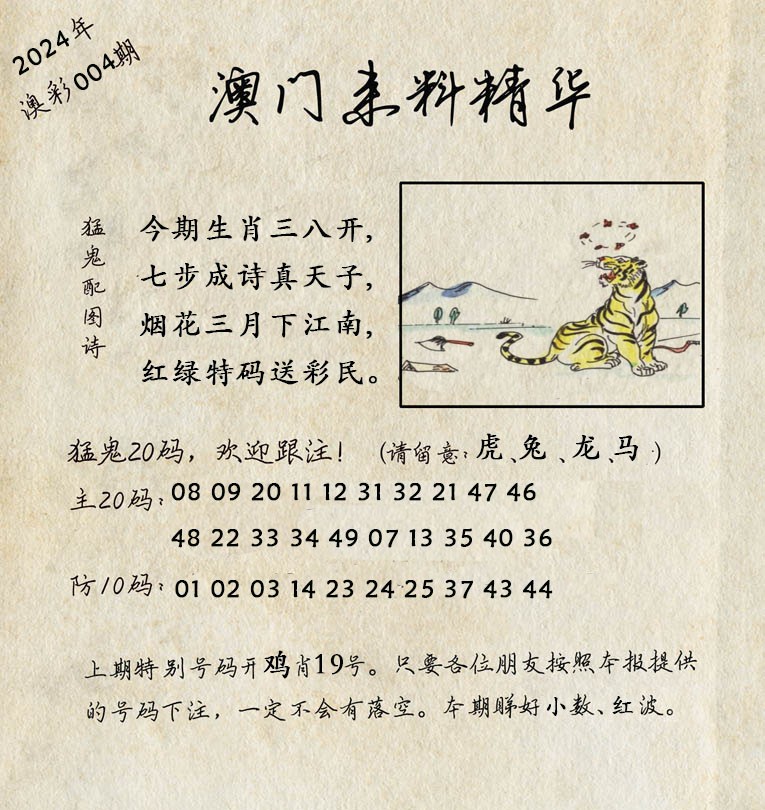 2024年
澳彩004期
澳门来料精华
猛鬼配图诗
今期生肖三八开,
七步成诗真天子,
烟花三月下江南,
红绿特码送彩民。
猛鬼20码，欢迎跟注！（请留意:虎、兔、龙、马）
主20码: 08 09 20 11 12 31 32 21 47 46
48 22 33 34 49 07 13 35 40 36
防10码: 01 02 03 14 23 24 25 37 43 44
上期特别号码开鸡肖19号。只要各位朋友按照本报提供
的号码下注，一定不会有落空。本期睇好小数、红波。